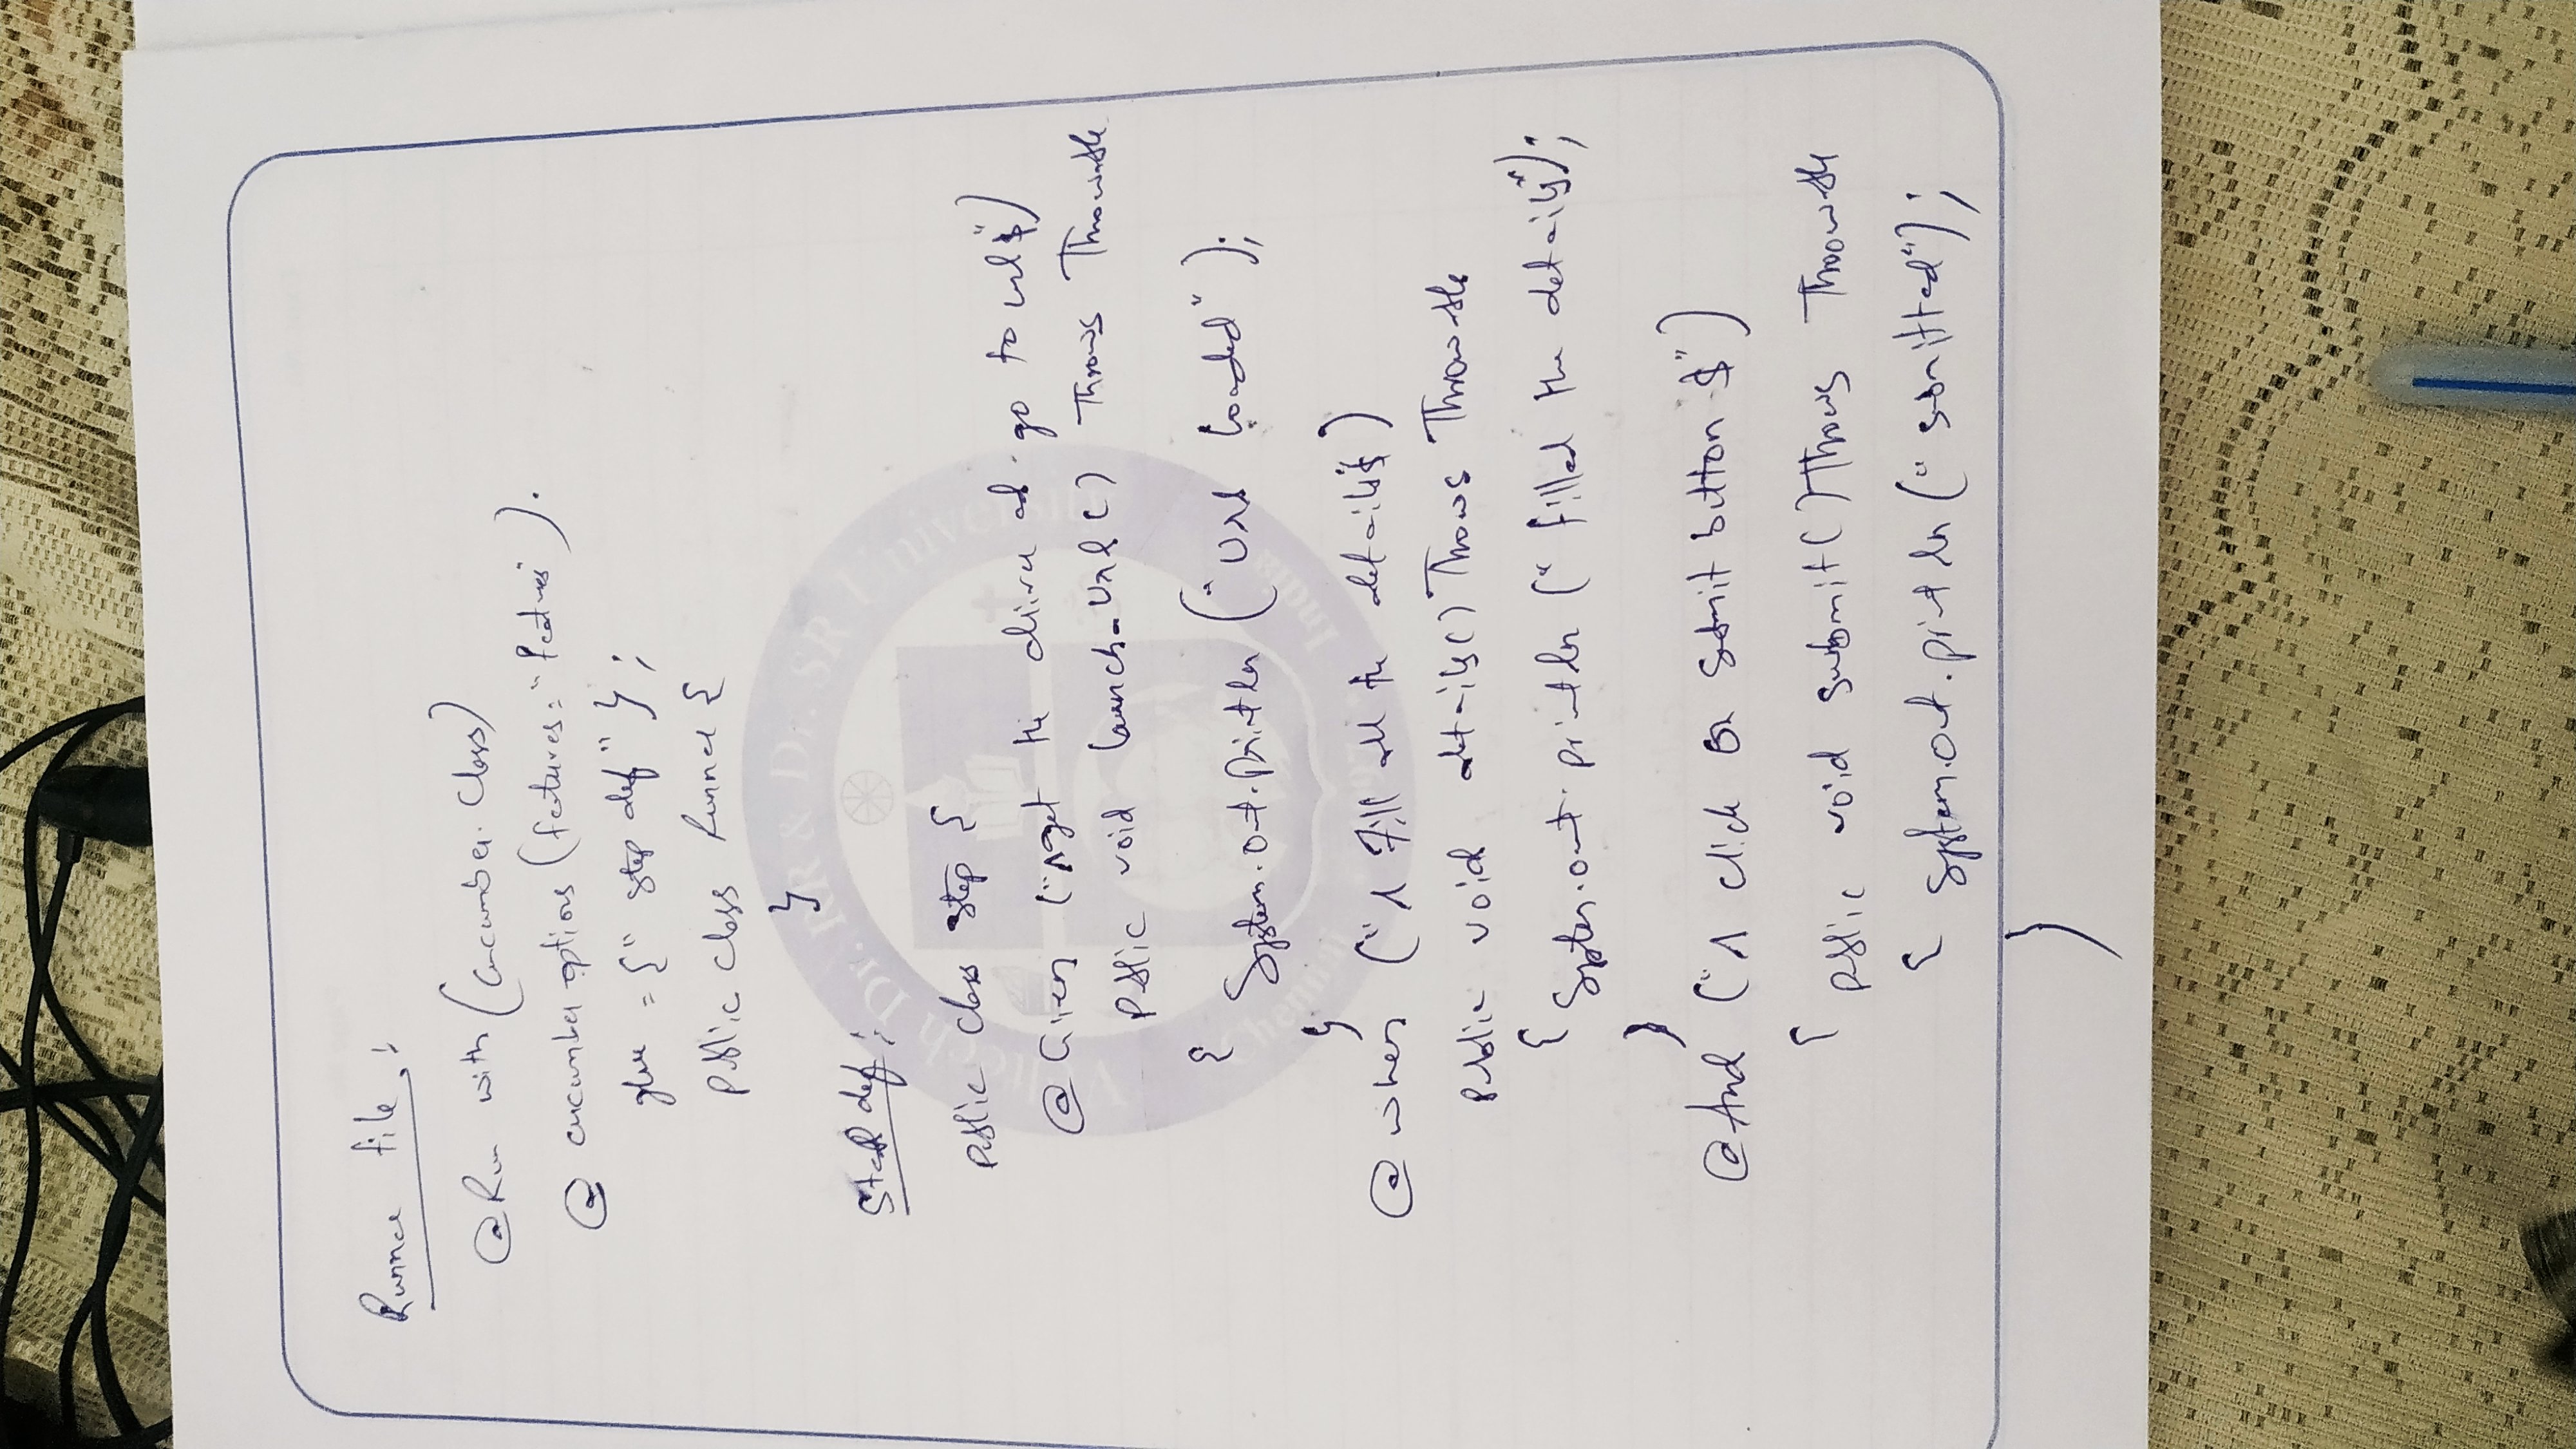 Runner file :
@Run with (Cucumber. Class)
@ cucumber options (features = "Features").
glue = {" step def" } ;
Public class Runner {
}
Step def :
Public class step {
@Given ("^get the driver and go to url$")
Public void launch_Url () Throws Throwable
{ System.out.Println ("Url loaded" );
}
@when ("^ Fill all the details$")
Public void details() Throws Throwable
{ System.out.println (" filled the details");
}
@And ("^ click on submit button $")
{ Public void submit() Throws Throwable
{ System.out.println (" submitted");
}
Veltech Dr. RR & Dr. SR University
Chennai India